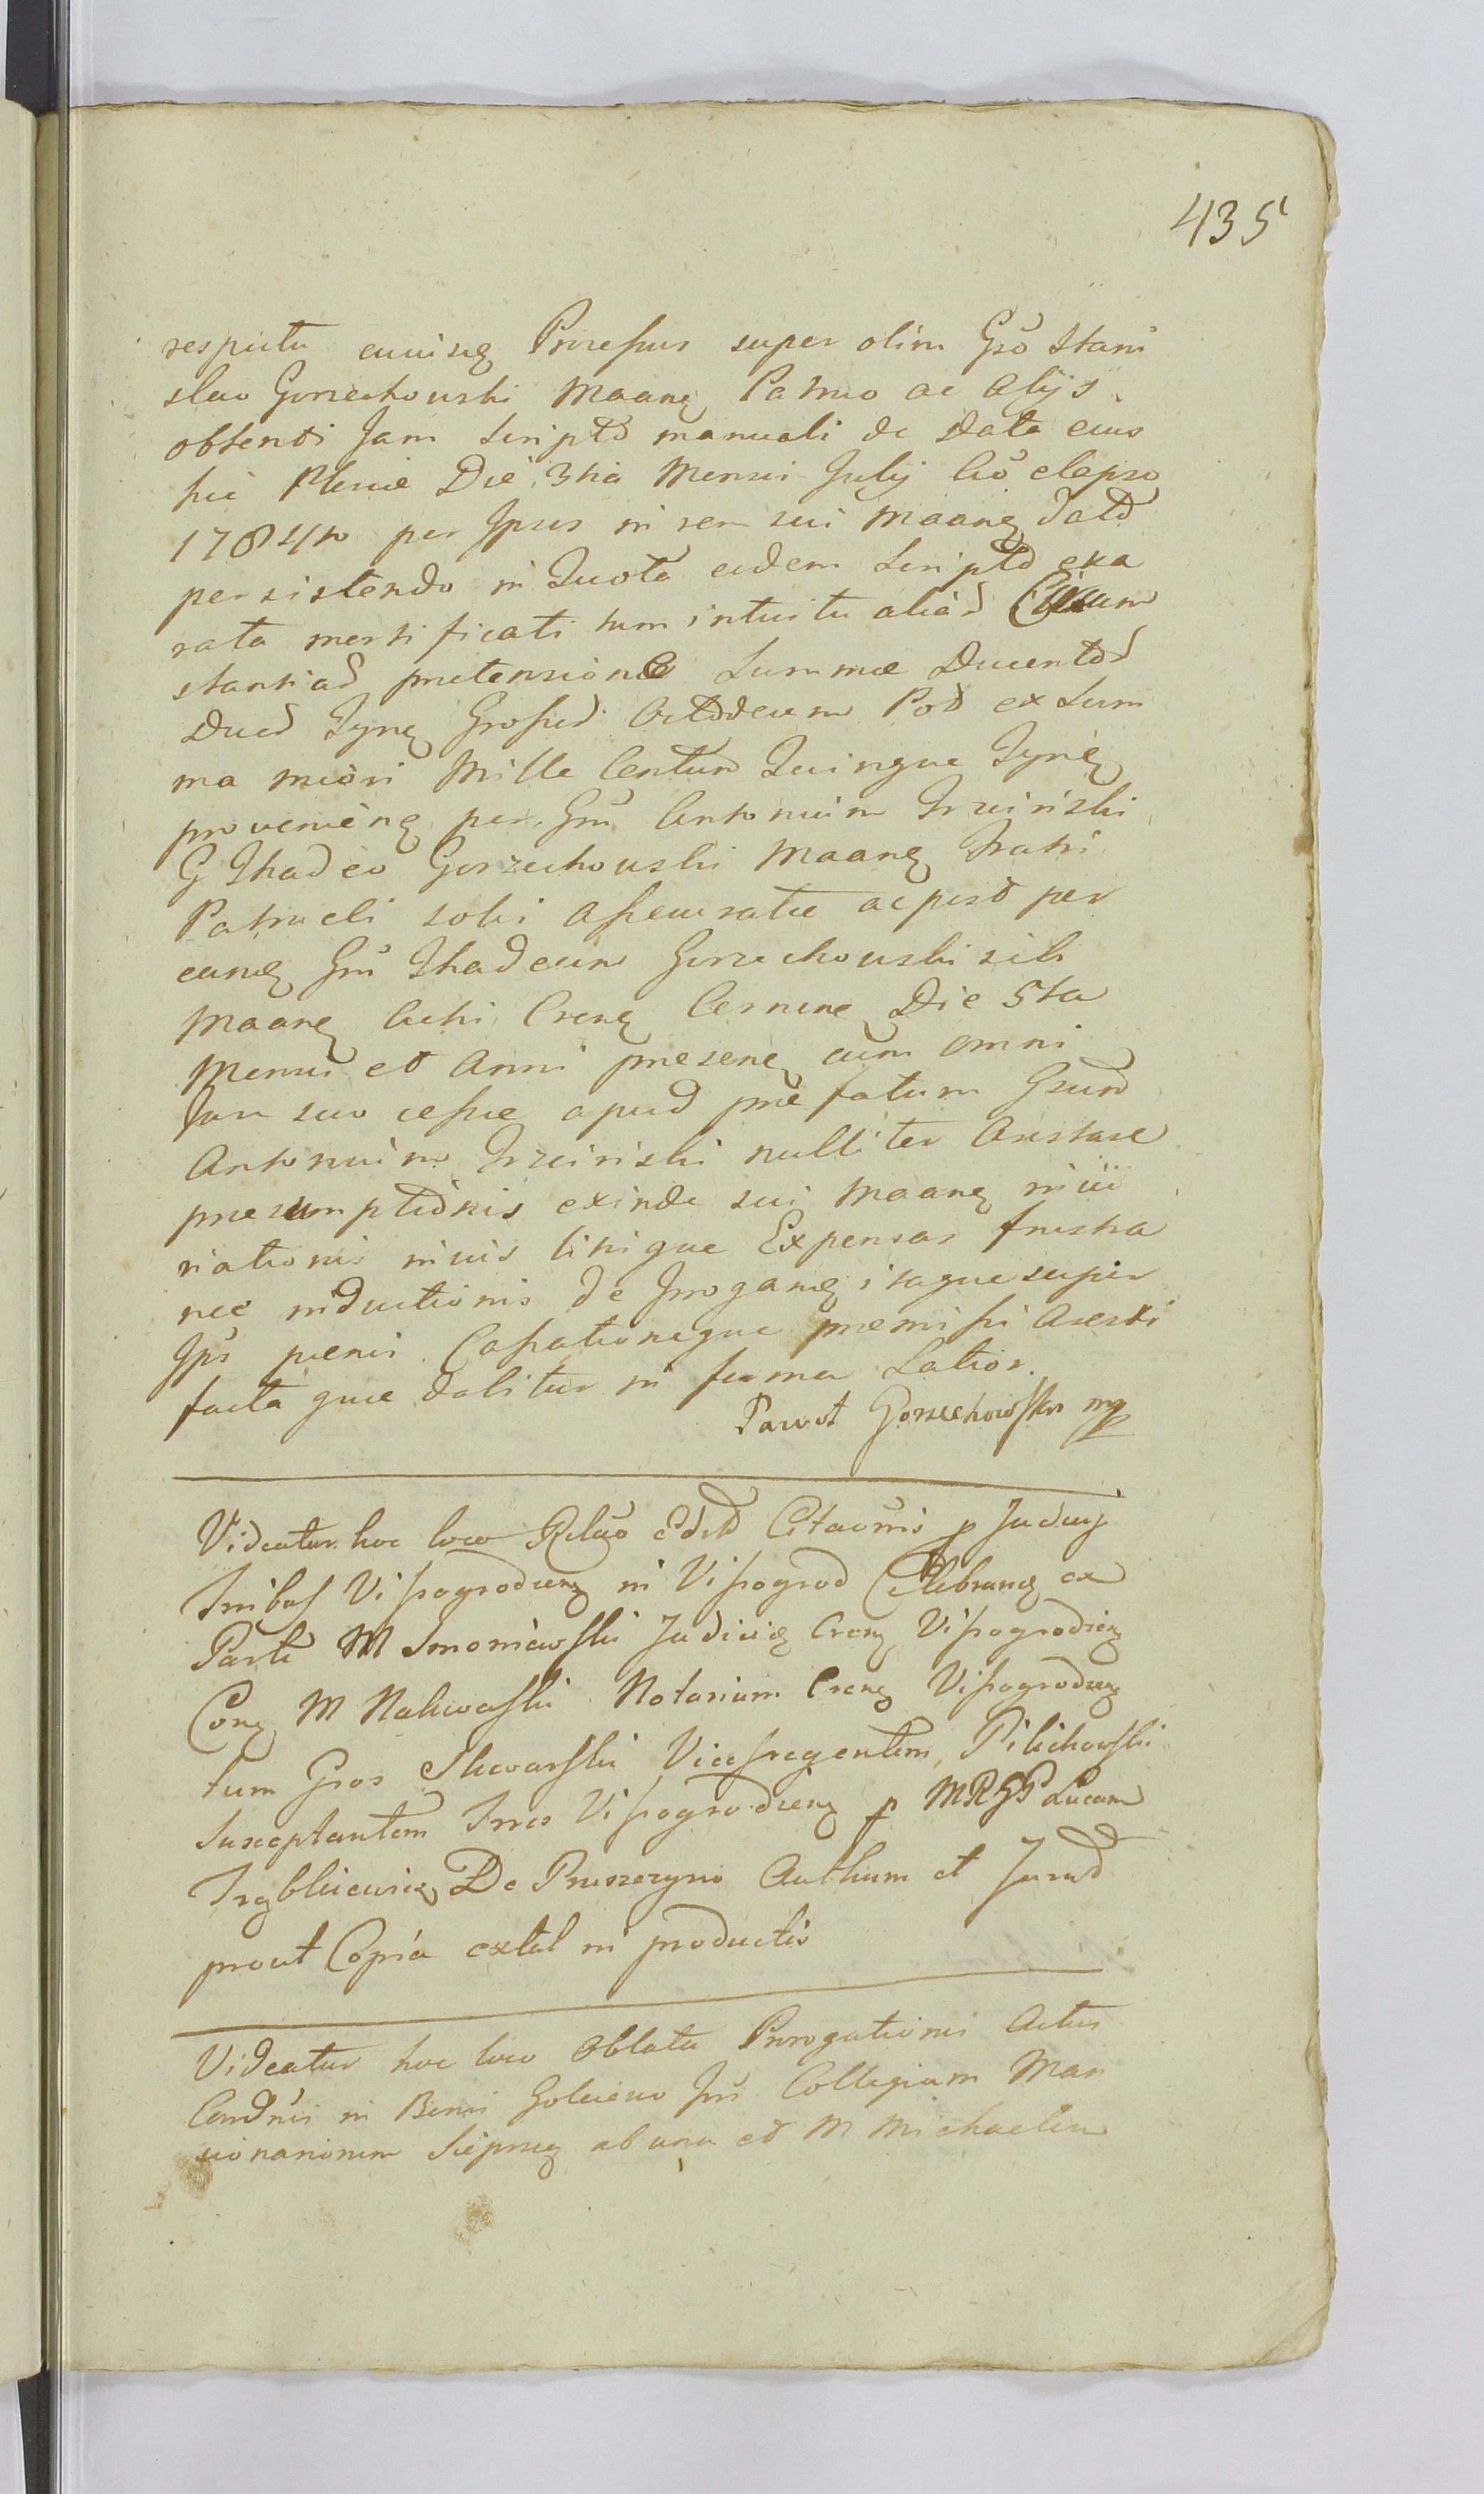 435
respectu cuiusq Processus super olim Gsō Stani
slao Gorzechowski Maanq Patruo ac Alijs
obtenti Jam Scriptō manuali de Data eius
hic Plociæ Die 3tia Mensis Julij Aō elapso
1784to per Ipsus in rem sui Maanq Datō
persistendo in Quota eidem Scriptō exa
rata mortificati tum intuitu aliaȓ Circum
stantiaȓ prætensionē Summæ Ducentoȓ
Duoȓ Tynq Grossuȓ Octodecim Pol ex Sum
ma maiōri Mille Centum Quinque Tynq
provenienq per Gsū Antonium Trzcinski
G Thadeo Gorzechowski Maanq Fratri
Patrueli soli assecuratæ ac post per
eunq Gsū Thadeum Gorzechowski sibi
Maanq Acti Crenq Cernenq Die 5ta
Mensis et Anni præsenq cum omni
Jure suo cessæ apud præfatum Gsum
Antonium Trzcinski nulliter Arestare
præsumptiōnis exinde sui Maanq iniu
riationis inuis litique Expensas frustra
nec inductionis de Irroganq itaque super
Ips pœnis Cassationeque præmissi Aresti
facta quæ dabitur in forma Latior.
Pawet Gorzechowski mp
Videatur hoc loco Relaō Edictō Citaōnis p Judicij
Tribus Vissogrodienq in Vissogrod Celebranq ex
Parte M Smoniewski Judicis Crenq Vissogrodienq
Conq M Nakwaski Notarium Crenq Vissogrodienq
tum Gsos Skwarski Vicesregentem, Pilichowski
Susceptantem Trres Vissogrodienq p MRGP Lucam
Trębkiewicz De Pruszczyno Authum et Juraȓ
prout Copia extat in productis
Videatur hoc loco Oblata Prorogationis Actus
Condnis in Bonis Golcjewo Jnr Collegium Man
sionariorum Sieprcq ab una et M Michaelem